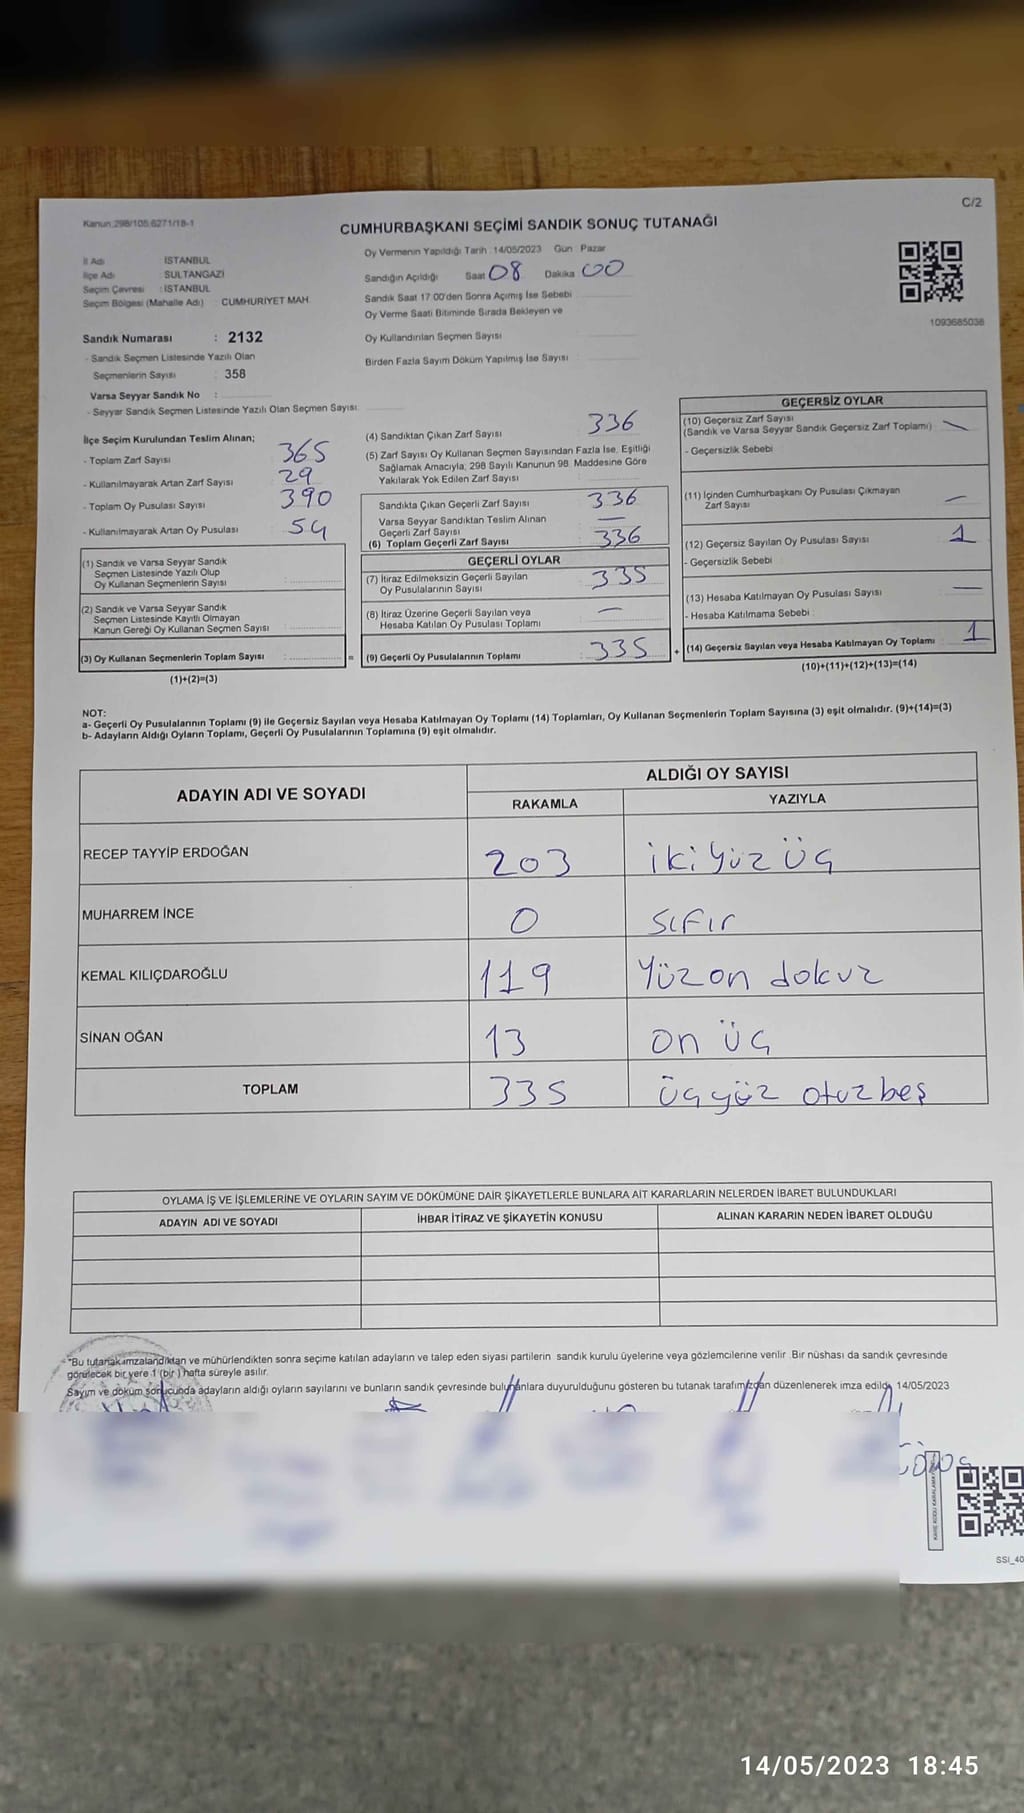 Kanun:298/105,6271/18-1
C/2
CUMHURBAŞKANI SEÇİMİ SANDIK SONUÇ TUTANAĞI
İl Adı : İSTANBUL
İlçe Adı : SULTANGAZİ
Seçim Çevresi : İSTANBUL
Seçim Bölgesi (Mahalle Adı) : CUMHURİYET MAH.
Sandık Numarası : 2132
- Sandık Seçmen Listesinde Yazılı Olan
Seçmenlerin Sayısı : 358
Varsa Seyyar Sandık No :
- Seyyar Sandık Seçmen Listesinde Yazılı Olan Seçmen Sayısı:
Oy Vermenin Yapıldığı Tarih : 14/05/2023 Gün Pazar
Sandığın Açıldığı Saat 08 Dakika 00
Sandık Saat 17:00'den Sonra Açımış İse Sebebi
Oy Verme Saati Bitiminde Sırada Bekleyen ve
Oy Kullandırılan Seçmen Sayısı
Birden Fazla Sayım Döküm Yapılmış İse Sayısı
1093685038
İlçe Seçim Kurulundan Teslim Alınan;
- Toplam Zarf Sayısı 365
- Kullanılmayarak Artan Zarf Sayısı 29
- Toplam Oy Pusulası Sayısı 390
- Kullanılmayarak Artan Oy Pusulası 54
(1) Sandık ve Varsa Seyyar Sandık
Seçmen Listesinde Yazılı Olup
Oy Kullanan Seçmenlerin Sayısı :
(2) Sandık ve Varsa Seyyar Sandık
Seçmen Listesinde Kayıtlı Olmayan
Kanun Gereği Oy Kullanan Seçmen Sayısı :
(3) Oy Kullanan Seçmenlerin Toplam Sayısı : =
(1)+(2)=(3)
(4) Sandıktan Çıkan Zarf Sayısı 336
(5) Zarf Sayısı Oy Kullanan Seçmen Sayısından Fazla İse, Eşitliği
Sağlamak Amacıyla, 298 Sayılı Kanunun 98. Maddesine Göre
Yakılarak Yok Edilen Zarf Sayısı
Sandıkta Çıkan Geçerli Zarf Sayısı 336
Varsa Seyyar Sandıktan Teslim Alınan
Geçerli Zarf Sayısı —
(6) Toplam Geçerli Zarf Sayısı 336
GEÇERLİ OYLAR
(7) İtiraz Edilmeksizin Geçerli Sayılan
Oy Pusulalarının Sayısı 335
(8) İtiraz Üzerine Geçerli Sayılan veya
Hesaba Katılan Oy Pusulası Toplamı —
(9) Geçerli Oy Pusulalarının Toplamı 335 +
GEÇERSİZ OYLAR
(10) Geçersiz Zarf Sayısı
(Sandık ve Varsa Seyyar Sandık Geçersiz Zarf Toplamı) —
- Geçersizlik Sebebi
(11) İçinden Cumhurbaşkanı Oy Pusulası Çıkmayan
Zarf Sayısı —
(12) Geçersiz Sayılan Oy Pusulası Sayısı 1
- Geçersizlik Sebebi :
(13) Hesaba Katılmayan Oy Pusulası Sayısı —
- Hesaba Katılmama Sebebi :
(14) Geçersiz Sayılan veya Hesaba Katılmayan Oy Toplamı 1
(10)+(11)+(12)+(13)=(14)
NOT:
a- Geçerli Oy Pusulalarının Toplamı (9) ile Geçersiz Sayılan veya Hesaba Katılmayan Oy Toplamı (14) Toplamları, Oy Kullanan Seçmenlerin Toplam Sayısına (3) eşit olmalıdır. (9)+(14)=(3)
b- Adayların Aldığı Oyların Toplamı, Geçerli Oy Pusulalarının Toplamına (9) eşit olmalıdır.
ADAYIN ADI VE SOYADI
ALDIĞI OY SAYISI
RAKAMLA YAZIYLA
RECEP TAYYİP ERDOĞAN 203 iki yüz üç
MUHARREM İNCE 0 sıfır
KEMAL KILIÇDAROĞLU 119 Yüz on dokuz
SİNAN OĞAN 13 on üç
TOPLAM 335 üçyüz otuzbeş
OYLAMA İŞ VE İŞLEMLERİNE VE OYLARIN SAYIM VE DÖKÜMÜNE DAİR ŞİKAYETLERLE BUNLARA AİT KARARLARIN NELERDEN İBARET BULUNDUKLARI
ADAYIN ADI VE SOYADI İHBAR İTİRAZ VE ŞİKAYETİN KONUSU ALINAN KARARIN NEDEN İBARET OLDUĞU
*Bu tutanak imzalandıktan ve mühürlendikten sonra seçime katılan adayların ve talep eden siyasi partilerin sandık kurulu üyelerine veya gözlemcilerine verilir. Bir nüshası da sandık çevresinde
görülecek bir yere 1 (bir) hafta süreyle asılır.
Sayım ve döküm sonucunda adayların aldığı oyların sayılarını ve bunların sandık çevresinde bulunanlara duyurulduğunu gösteren bu tutanak tarafımızdan düzenlenerek imza edildi. 14/05/2023
SSI_40
14/05/2023 18:45